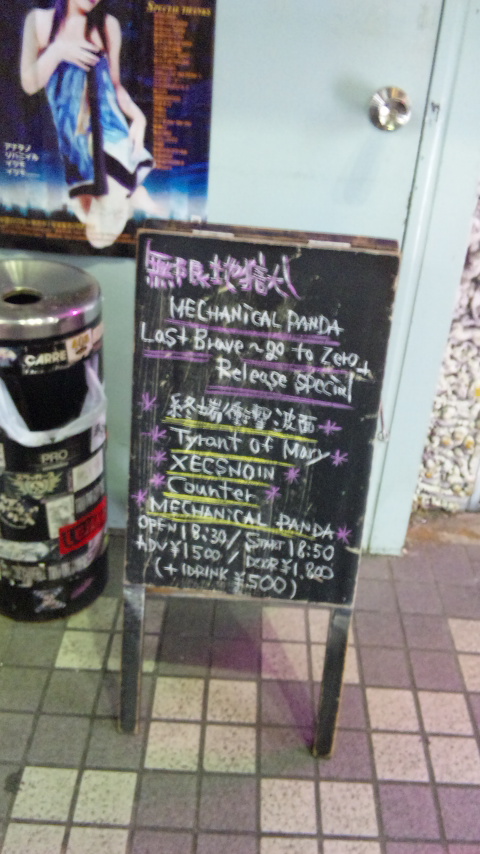 SPECIAL THANKS
アナタノ
リバイバル
イツモ
イツモ……
無限地獄
MECHANICAL PANDA
Last Brave ~ go to Zero
Release special
終端衝撃波面
Tyrant of Mary
XECSNOIN
Counter
MECHANICAL PANDA
OPEN 18:30 / START 18:50
ADV ¥1500 / DOOR ¥1.800
(+1DRINK ¥500)
CARRE
PRO